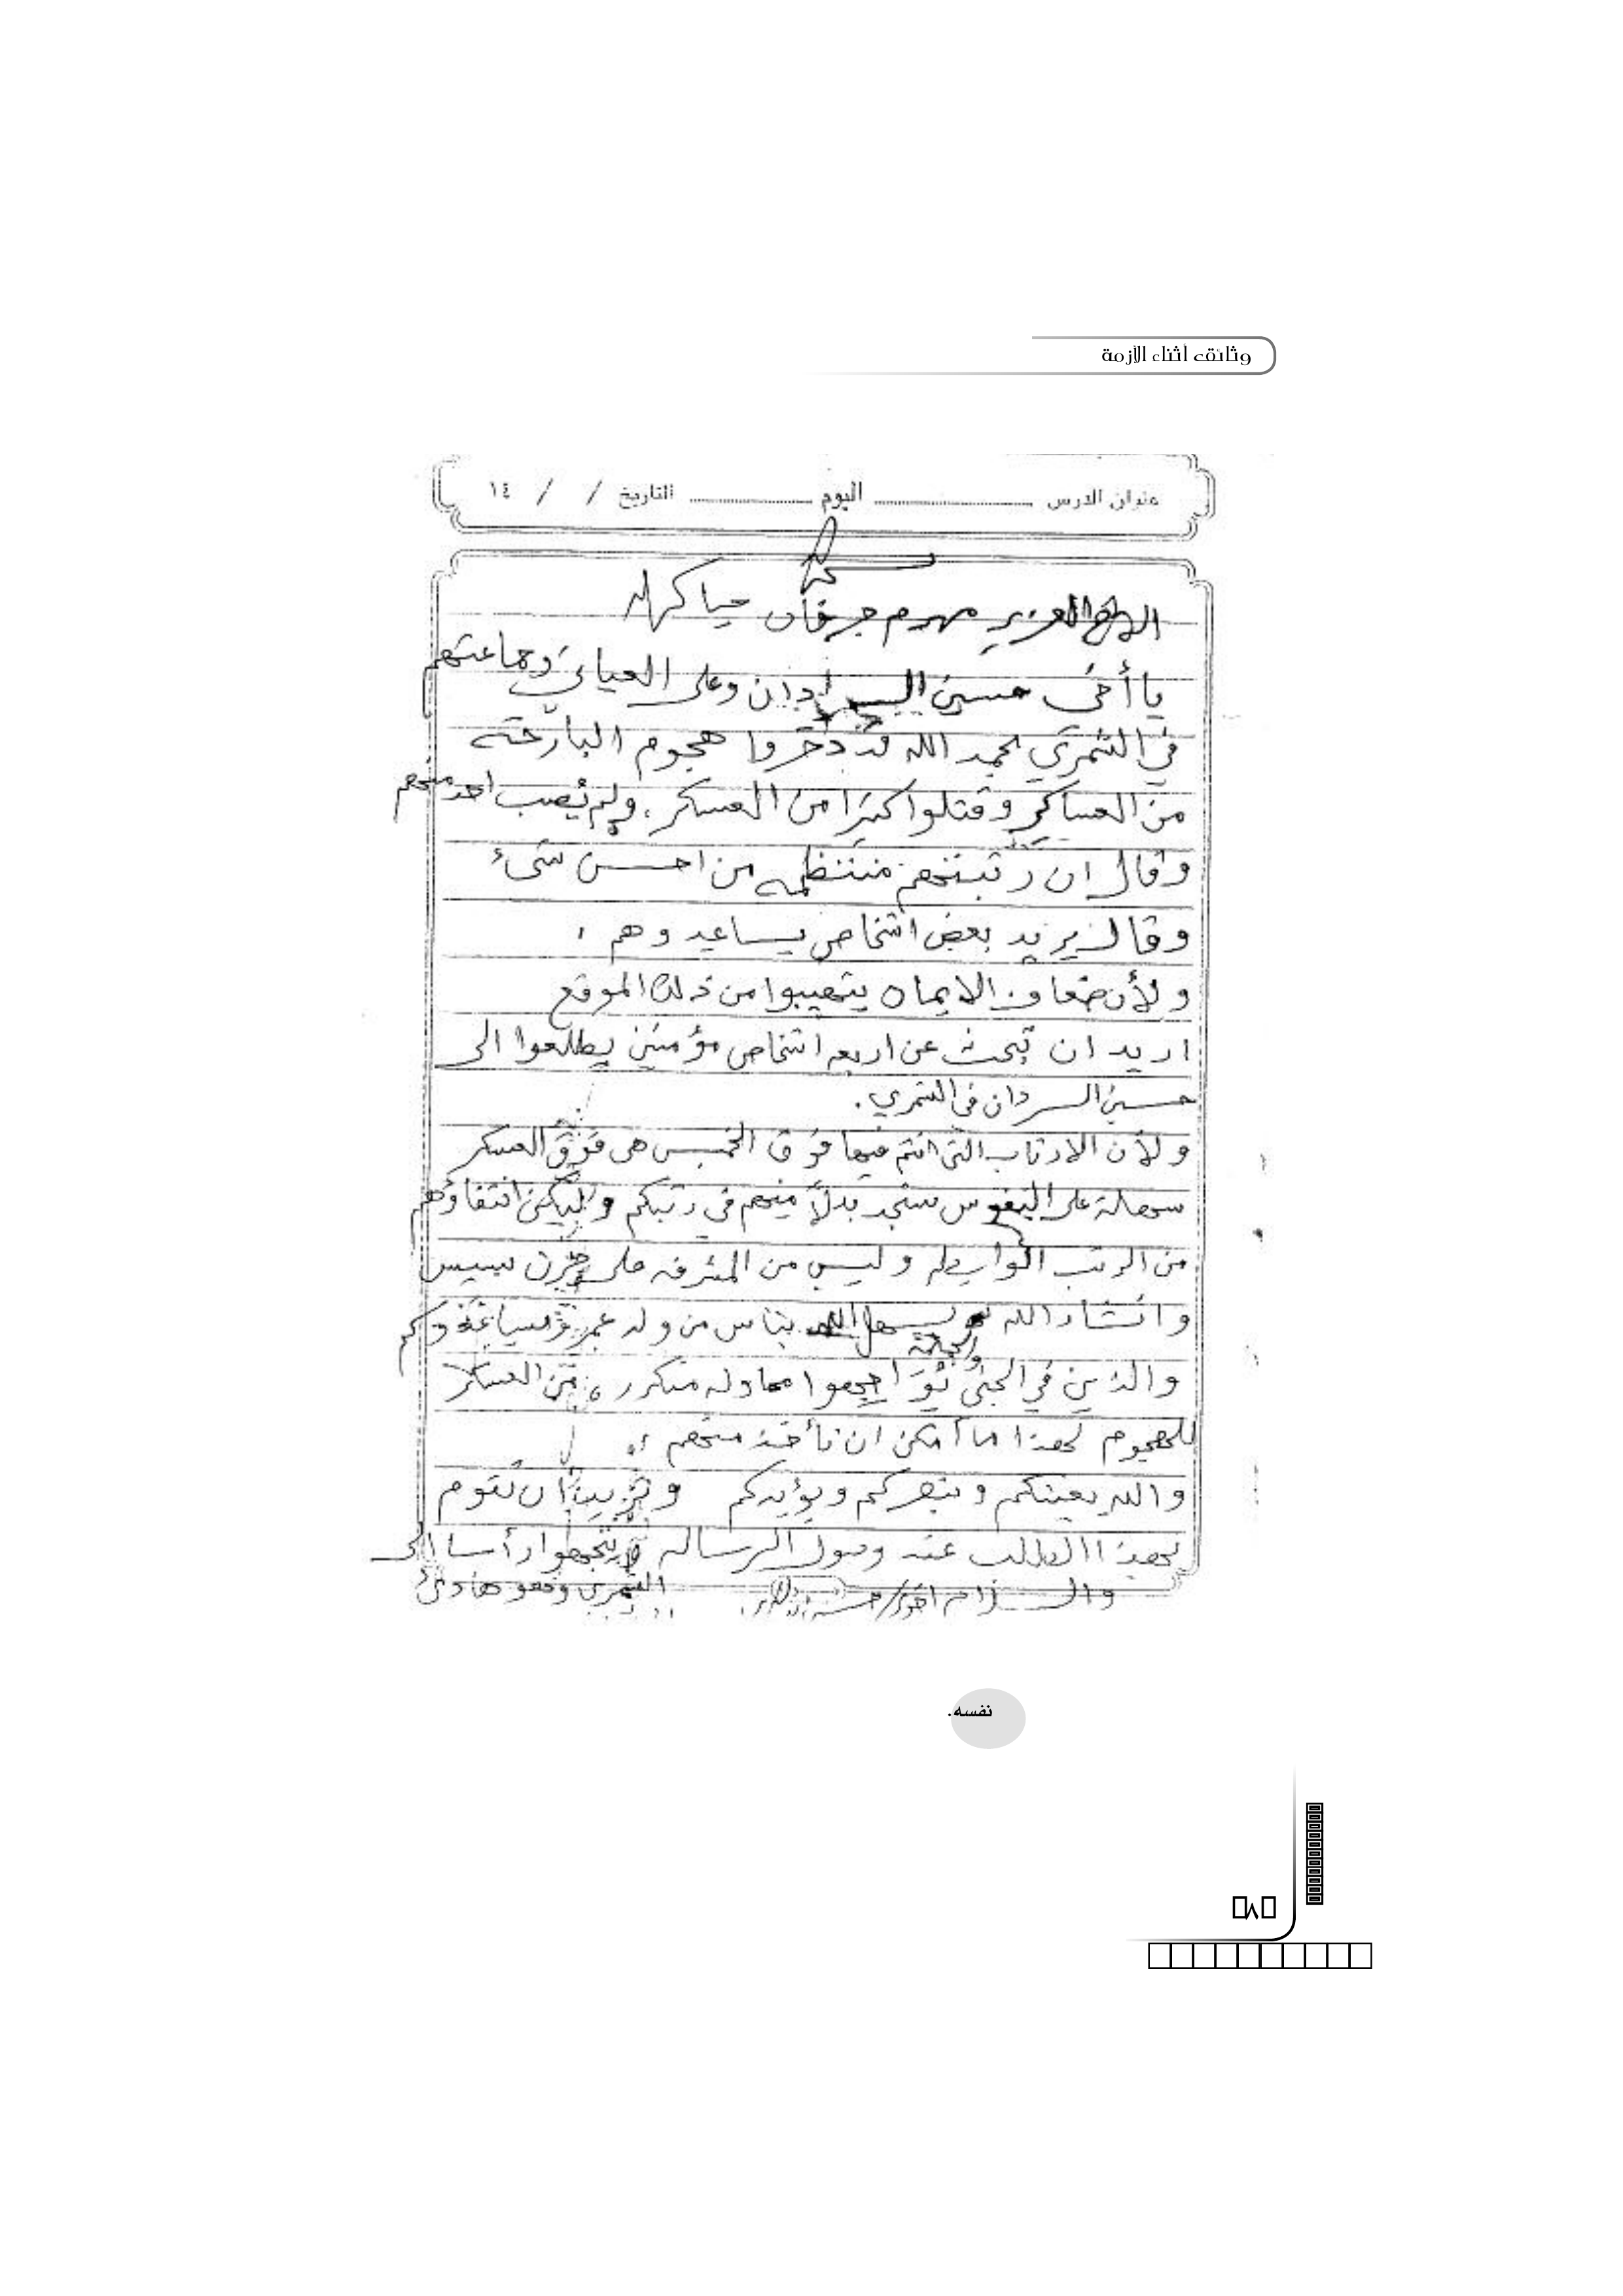 وثائق أثناء الأزمة
عنوان الدرس اليوم التاريخ / / ١٤
الاخ العزيز مهدم جرفان حياكم الله
يا أخي حسين السردان وعلى العياني وجماعتهم
في الشمري بحمد الله قد دحروا هجوم البارحة
من العساكر وقتلوا كثيرا من العسكر، ولم يُصب احد منهم
وقال ان رتبتهم منتظمه من احسن شيء
وقال يريد بعض اشخاص يساعدوهم
ولأن ضعاف الايمان يتهيبوا من ذلك الموقع
اريد ان تبحث عن اربعه اشخاص مؤمنين يطلعوا الى
حسين السردان في الشمري.
ولأن الارتاب التي انتم فيها فوق الخميس هي فوق العسكر
سهالة على النفوس ستجد بدلاً منهم في رتبكم وليكن انتقاؤهم
من الرتب الواطيه وليس من المشرفه على
وانشاء الله يسهل الله بناس من ولد عمر
والذين في الجني يواجهوا محاوله متكرره من العسكر
للهجوم لهذا ما أمكن ان نأخذ منهم
والله يعينكم وينصركم ويؤيدكم ونريد ان تقوم
بهذا الطلب عند وصول الرسالة يتجهوا رأسا الى
والسلام اخوك/ حسين الشمري وهو هادئ
نفسه.
٨